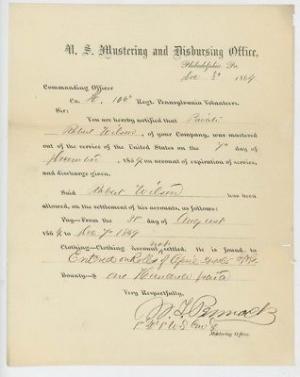 U. S. Mustering and Disbursing Office,
Philadelphia Pa
Dec 1864
Commanding Officer
Co. 106th Regt. Pennsylvania Volunteers.
Sir:
You are hereby notified that Private
Robert Wilson, of your Company, was mustered
out of the service of the United States on the 7th day
of December, 1864 on account of expiration of service,
and discharge given.
Said Robert Wilson has been
allowed, on the settlement of his accounts, as follows:
Pay—From the 31 day of August
1864 to Dec 7th 1864
Clothing—Clothing account not settled. He is found to
Entered on Rolls of
Bounty—$ One Hundred paid
Very Respectfully,
Mustering Officer.